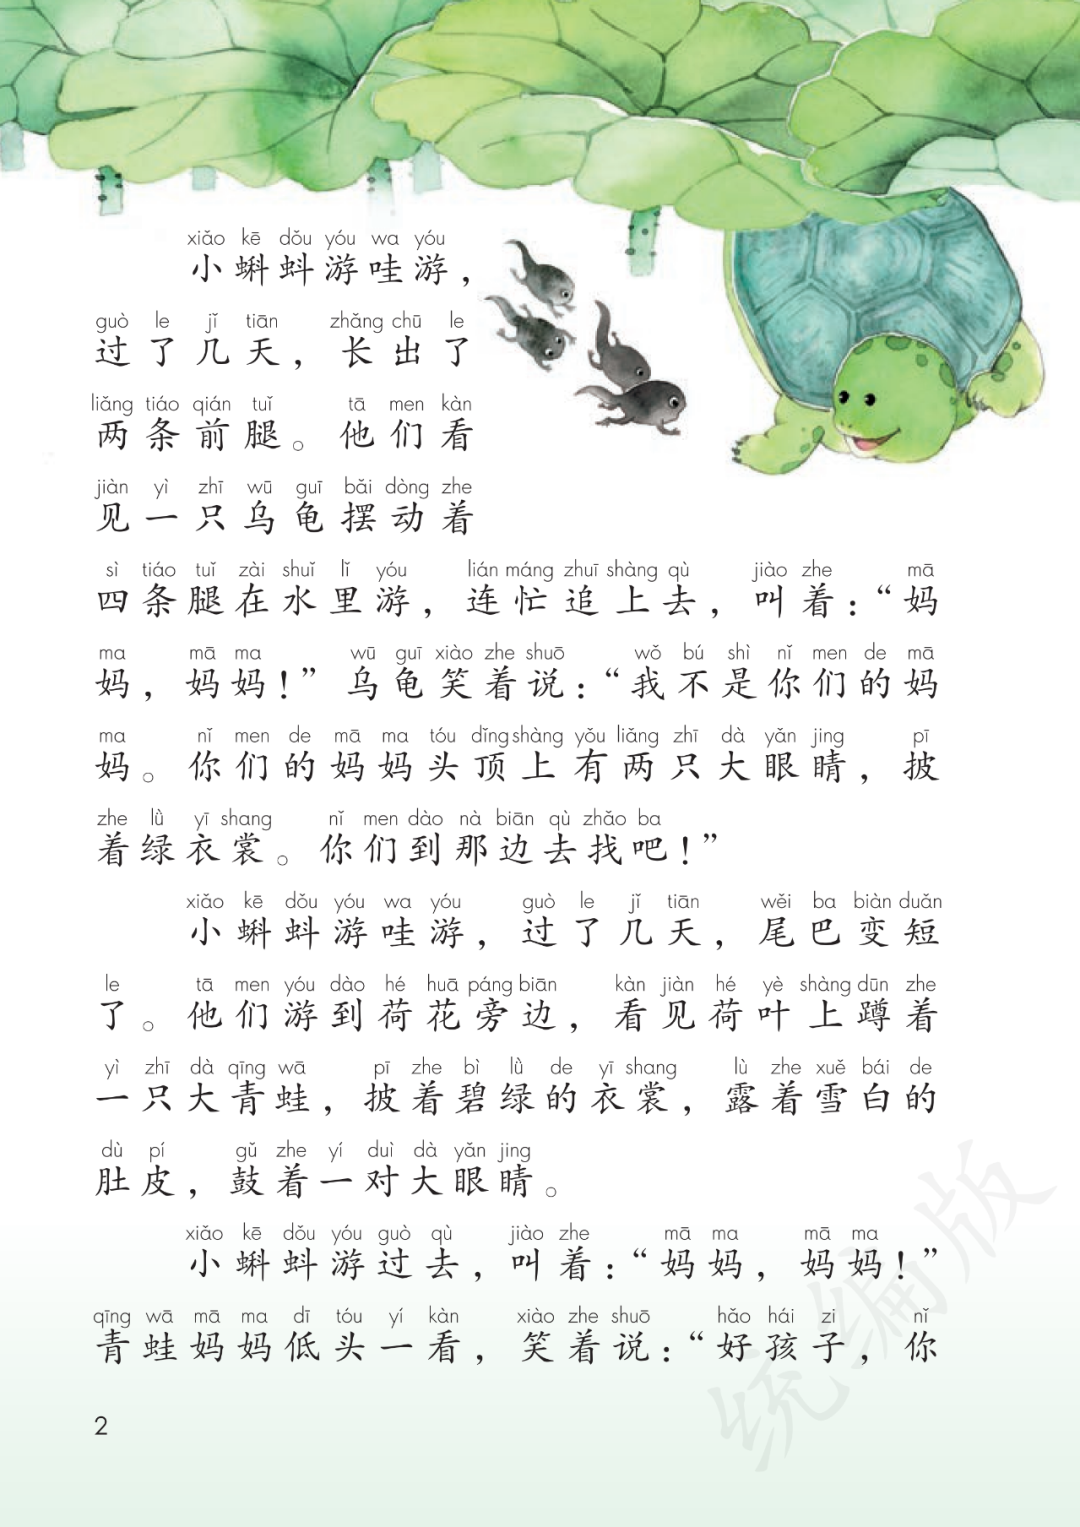 xiǎo kē dǒu yóu wa yóu
小蝌蚪游哇游，
guò le jǐ tiān zhǎng chū le
过了几天，长出了
liǎng tiáo qián tuǐ tā men kàn
两条前腿。他们看
jiàn yì zhī wū guī bǎi dòng zhe
见一只乌龟摆动着
sì tiáo tuǐ zài shuǐ lǐ yóu lián máng zhuī shàng qù jiào zhe mā
四条腿在水里游，连忙追上去，叫着：“妈
ma mā ma wū guī xiào zhe shuō wǒ bú shì nǐ men de mā
妈，妈妈！”乌龟笑着说：“我不是你们的妈
ma nǐ men de mā ma tóu dǐng shàng yǒu liǎng zhī dà yǎn jing pī
妈。你们的妈妈头顶上有两只大眼睛，披
zhe lǜ yī shang nǐ men dào nà biān qù zhǎo ba
着绿衣裳。你们到那边去找吧！”
xiǎo kē dǒu yóu wa yóu guò le jǐ tiān wěi ba biàn duǎn
小蝌蚪游哇游，过了几天，尾巴变短
le tā men yóu dào hé huā páng biān kàn jiàn hé yè shàng dūn zhe
了。他们游到荷花旁边，看见荷叶上蹲着
yì zhī dà qīng wā pī zhe bì lǜ de yī shang lù zhe xuě bái de
一只大青蛙，披着碧绿的衣裳，露着雪白的
dù pí gǔ zhe yí duì dà yǎn jing
肚皮，鼓着一对大眼睛。
xiǎo kē dǒu yóu guò qù jiào zhe mā ma mā ma
小蝌蚪游过去，叫着：“妈妈，妈妈！”
qīng wā mā ma dī tóu yí kàn xiào zhe shuō hǎo hái zi nǐ
青蛙妈妈低头一看，笑着说：“好孩子，你
2
统编版